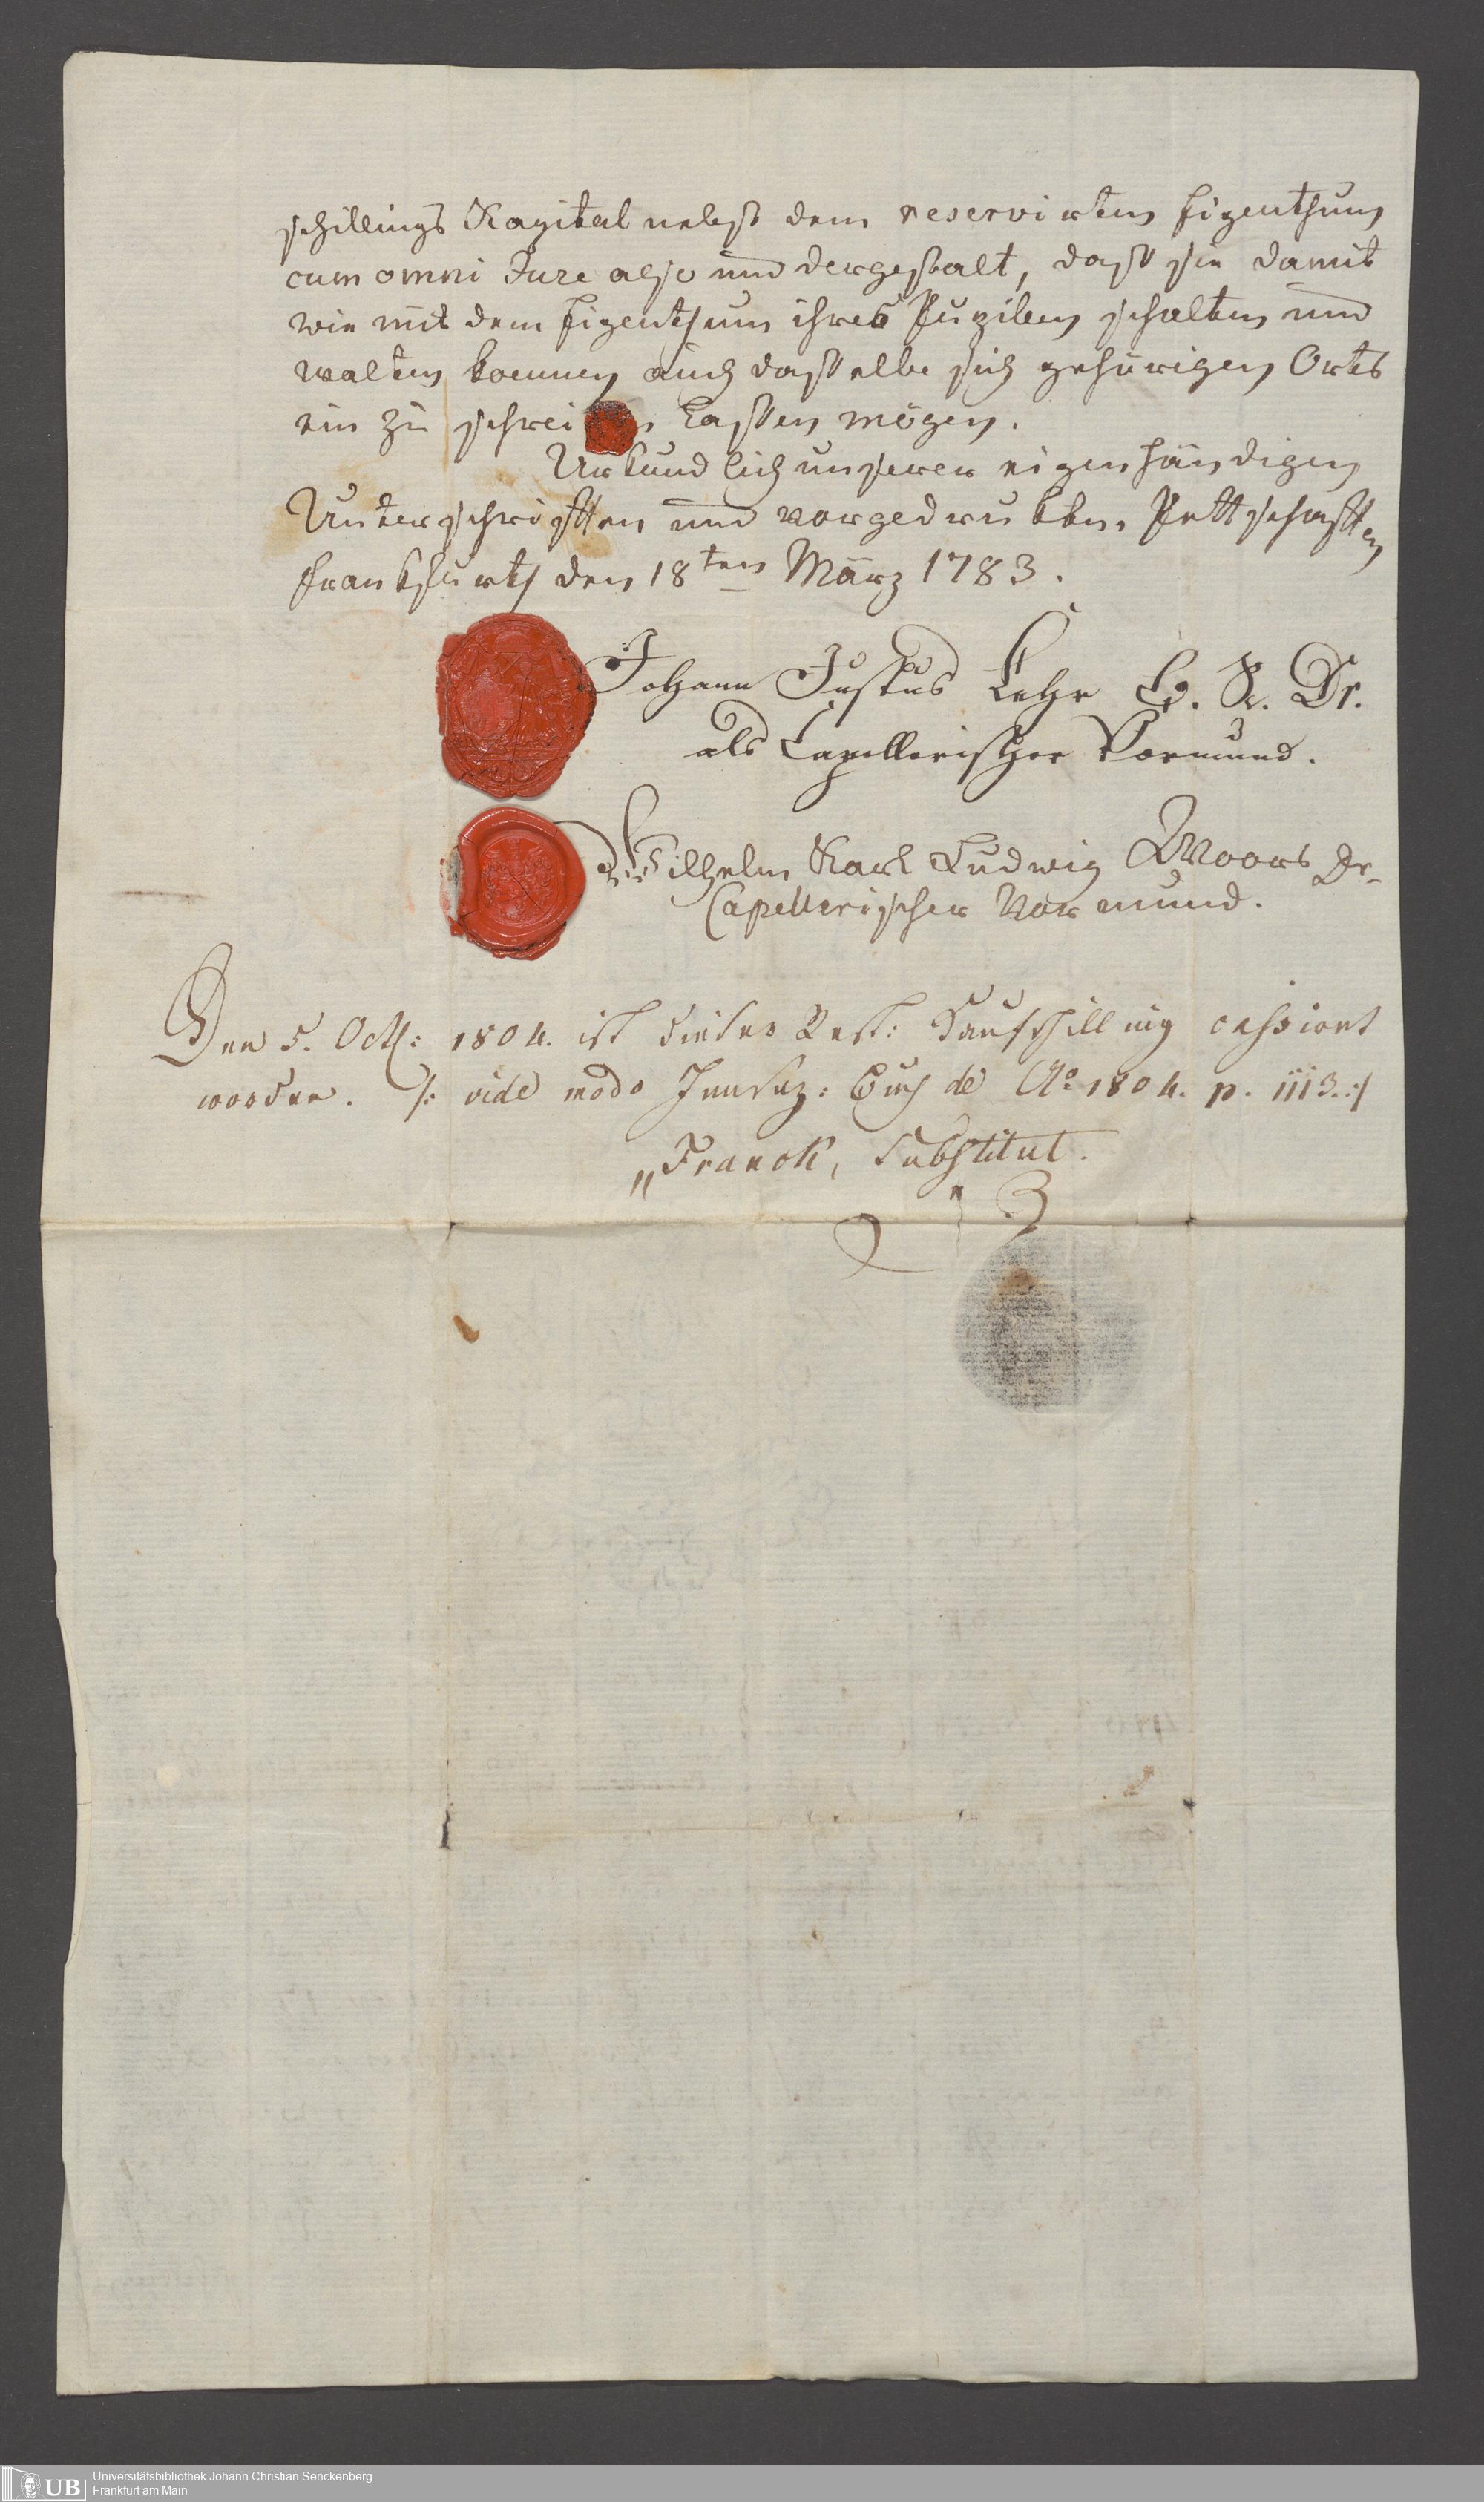 schillings Kapital nebst dem reservirten Eigenthum
cum omni Jure also und dergestalt, dasß sie damit
wie mit dem Eigenthum ihres Pupillen schalten und
walten koennen auch dasselbe sich gehörigen Orts
ein zu schrei n lassen mögen.
Urkundlich unserer eigenhändigen
Unterschrifften und vorgedrukten Pettschafften
Frankfurth den 18ten März 1783.
Johann Justus Lehr Dr.
als Capellerischer Vormund.
Wilhelm Karl Ludwig Moors Dr.
Capellerischer Vormund.
Den 5. Octb: 1804. ist dieser Rest: Kaufschilling cessirt
worden. /: vide modo Insaz: Buch de Ao 1804. p. 1113. :/
„Franck, Substitut.
Universitätsbibliothek Johann Christian Senckenberg
UB
Frankfurt am Main